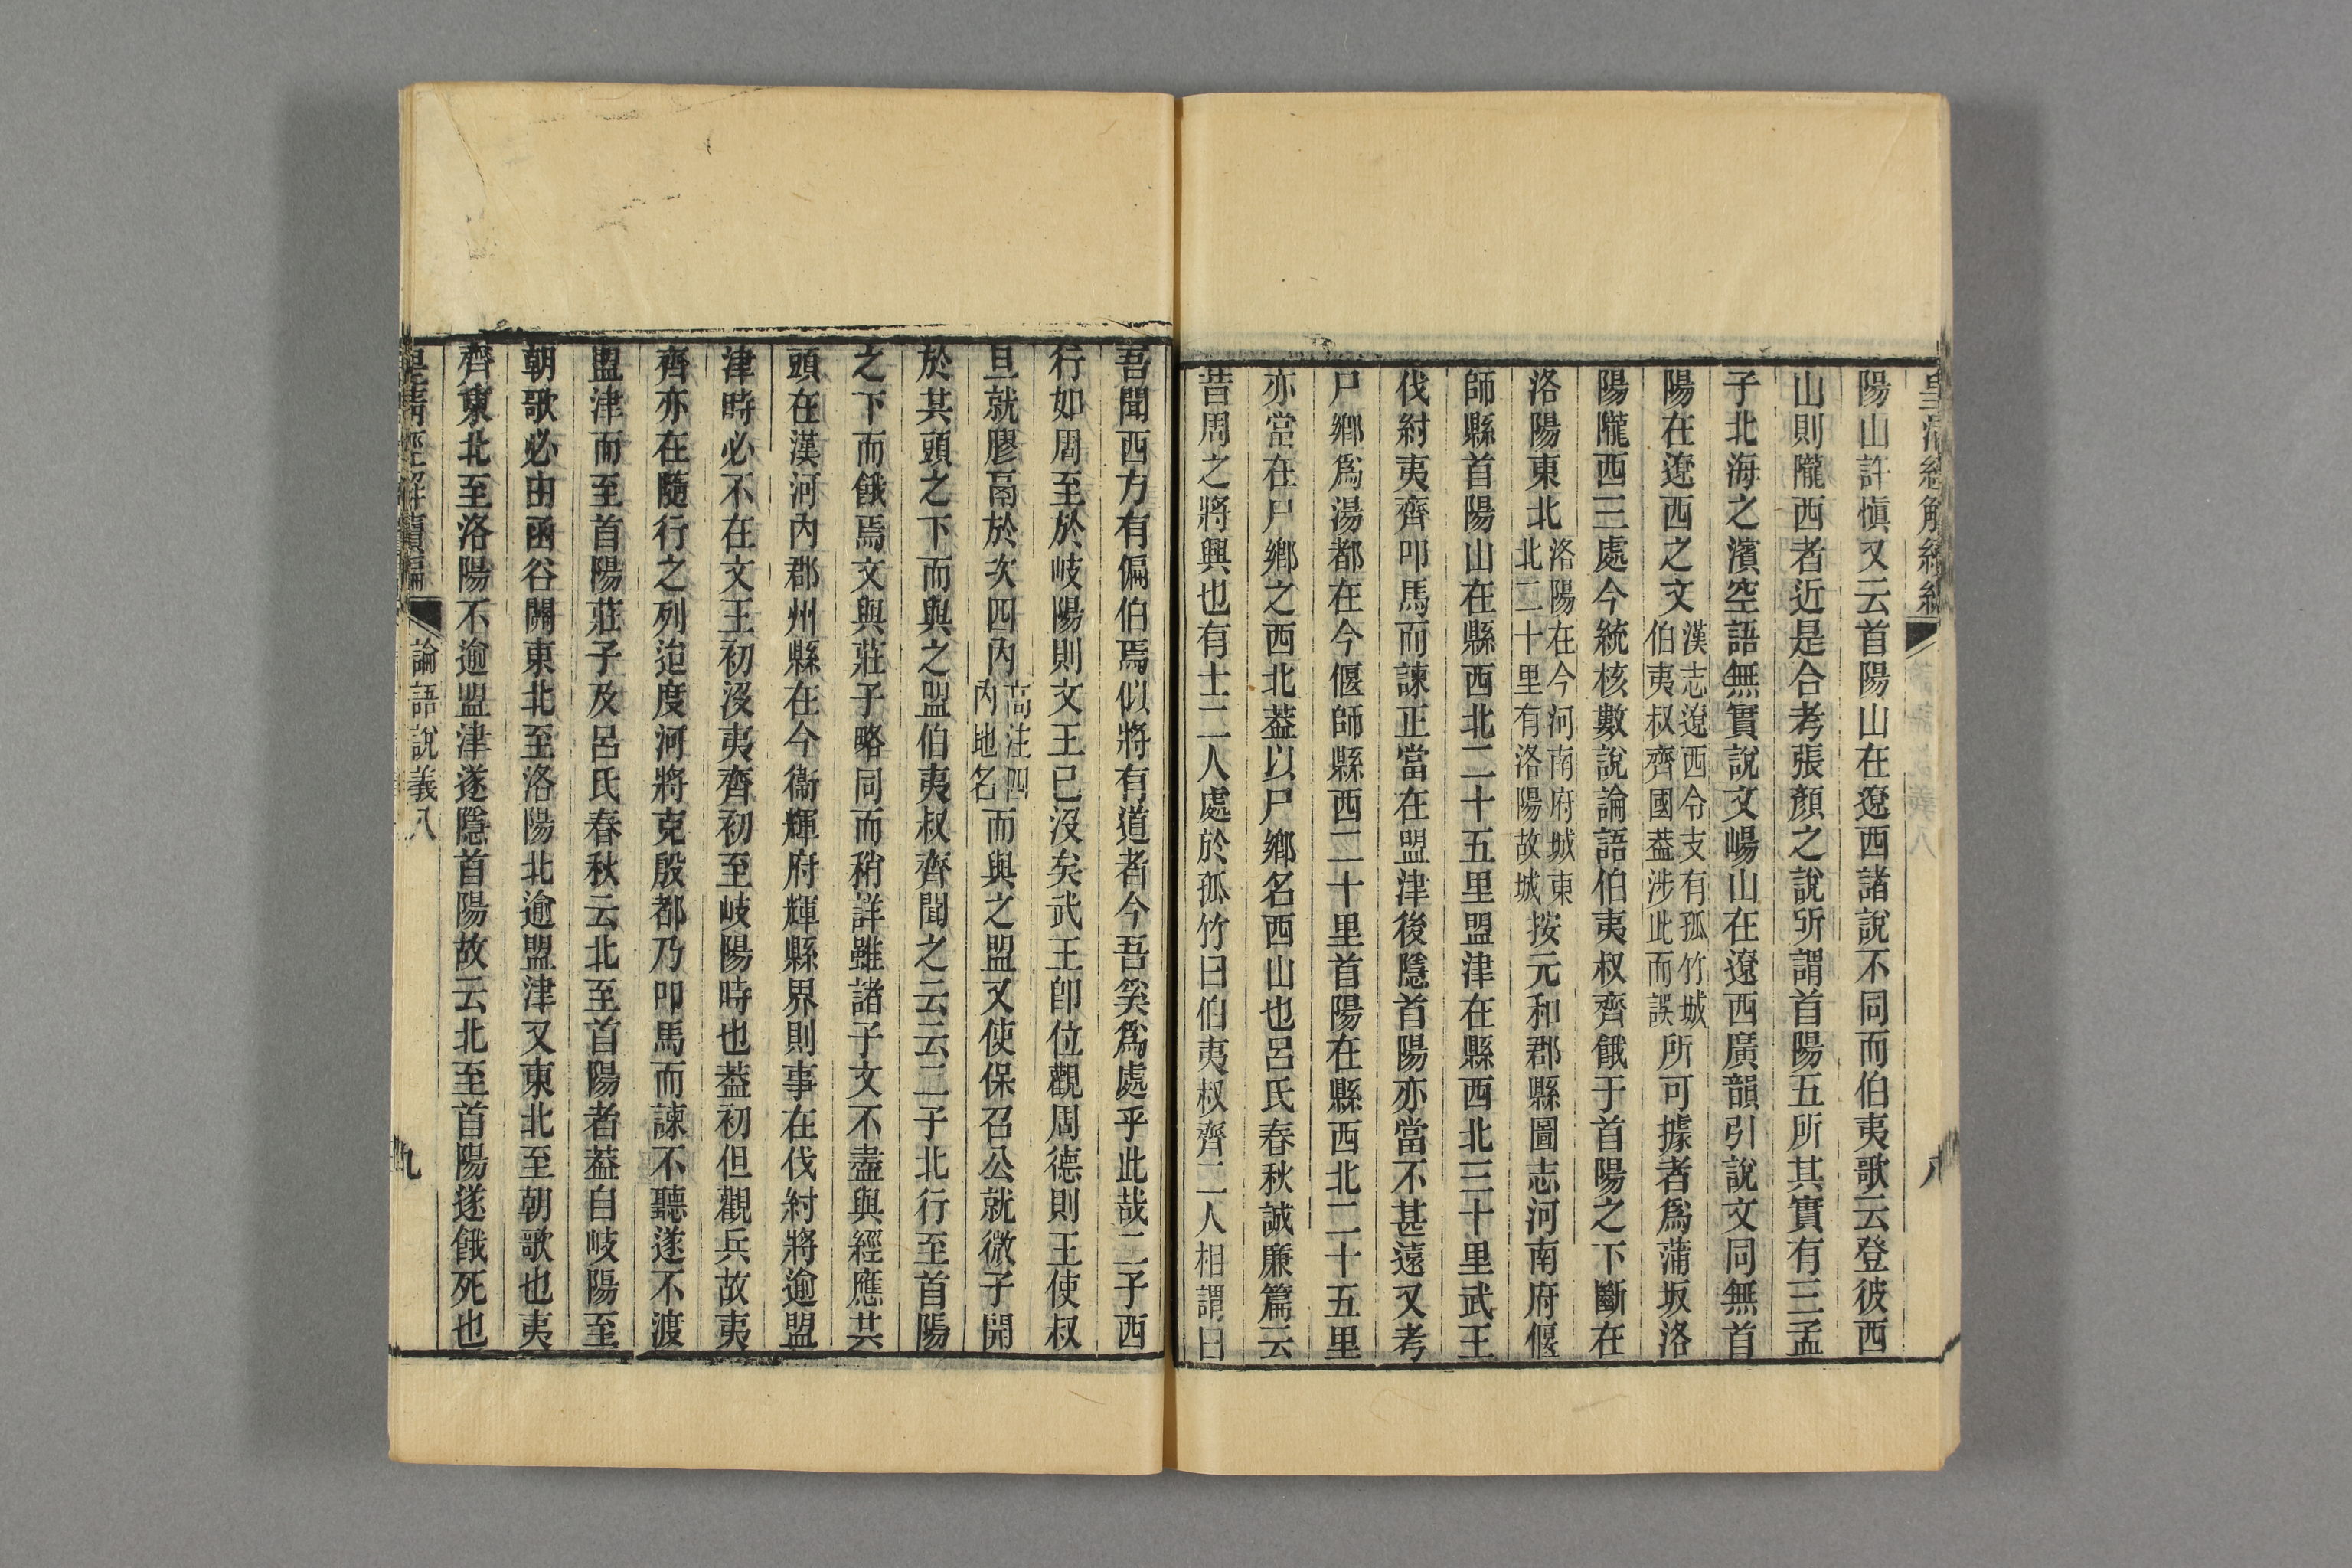 皇清經解續編
八
陽山許愼又云首陽山在遼西諸說不同而伯夷歌云登彼西
山則隴西者近是合考張顏之說所謂首陽五所其實有三孟
子北海之濱空語無實說文崵山在遼西廣韻引說文同無首
陽在遼西之文漢志遼西令支有孤竹城伯夷叔齊國葢涉此而誤所可據者爲蒲坂洛
陽隴西三處今統核數說論語伯夷叔齊餓于首陽之下斷在
洛陽東北洛陽在今河南府城東北二十里有洛陽故城按元和郡縣圖志河南府偃
師縣首陽山在縣西北二十五里盟津在縣西北三十里武王
伐紂夷齊叩馬而諫正當在盟津後隱首陽亦當不甚遠又考
尸鄉爲湯都在今偃師縣西二十里首陽在縣西北二十五里
亦當在尸鄉之西北葢以尸鄉名西山也呂氏春秋誠廉篇云
昔周之將興也有士二人處於孤竹曰伯夷叔齊二人相謂曰
吾聞西方有偏伯焉似將有道者今吾奚爲處乎此哉二子西
行如周至於岐陽則文王已沒矣武王卽位觀周德則王使叔
旦就膠鬲於次四內高注四內地名而與之盟又使保召公就微子開
於其頭之下而與之盟伯夷叔齊聞之云云二子北行至首陽
之下而餓焉文與莊子略同而稍詳雖諸子文不盡與經應共
頭在漢河內郡州縣在今衞輝府輝縣界則事在伐紂將逾盟
津時必不在文王初沒夷齊初至岐陽時也葢初但觀兵故夷
齊亦在隨行之列迨度河將克殷都乃叩馬而諫不聽遂不渡
盟津而至首陽莊子及呂氏春秋云北至首陽者葢自岐陽至
朝歌必由函谷關東北至洛陽北逾盟津又東北至朝歌也夷
齊東北至洛陽不逾盟津遂隱首陽故云北至首陽遂餓死也
皇淸經解續編
論語說義八
九